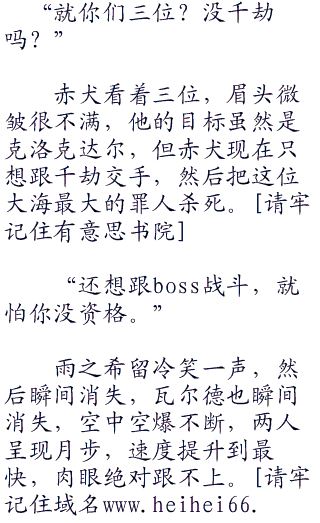 “就你们三位？没千劫
吗？”
赤犬看着三位，眉头微
皱很不满，他的目标虽然是
克洛克达尔，但赤犬现在只
想跟千劫交手，然后把这位
大海最大的罪人杀死。[请牢
记住有意思书院]
“还想跟boss战斗，就
怕你没资格。”
雨之希留冷笑一声，然
后瞬间消失，瓦尔德也瞬间
消失，空中空爆不断，两人
呈现月步，速度提升到最
快，肉眼绝对跟不上。[请牢
记住域名www.heihei66.